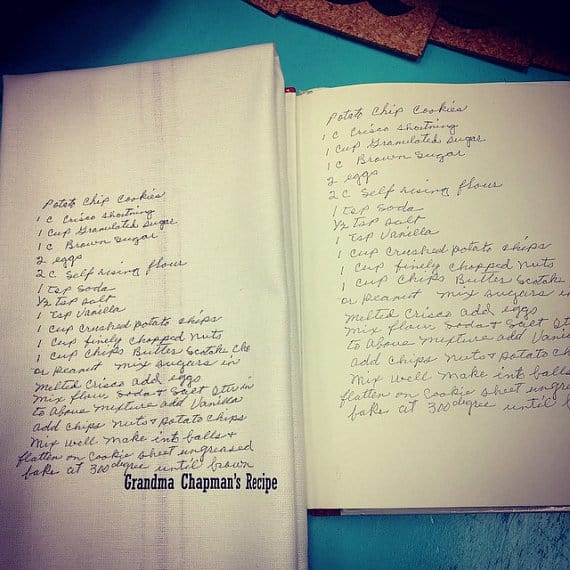 Potato Chip Cookies
1 C Crisco Shortning
1 Cup Granulated Sugar
1 C Brown Sugar
2 eggs
2 C Self rising flour
1 tsp Soda
1/2 tsp salt
1 Tsp Vanilla
1 Cup crushed potato chips
1 Cup finely chopped nuts
1 Cup Chips Butter Scotch Cho
or Peanut Mix Sugars in
Melted Crisco add eggs
Mix flour, Soda & Salt Stir in
to Above Mixture add Vanilla
add chips nuts & potato chips
Mix well Make into balls &
flatten on Cookie Sheet ungreased
bake at 300 degree until brown
Grandma Chapman's Recipe
Potato Chip Cookies
1 C Crisco Shortning
1 Cup Granulated Sugar
1 C Brown Sugar
2 eggs
2 C Self rising flour
1 tsp Soda
1/2 tsp salt
1 Tsp Vanilla
1 Cup crushed potato chips
1 Cup finely chopped nuts
1 Cup Chips Butter Scotch
or Peanut Mix Sugars in
Melted Crisco add eggs
Mix flour, Soda & Salt Stir
to Above Mixture add Vani
add chips nuts & potato ch
Mix well Make into balls
flatten on Cookie Sheet ungreas
bake at 300 degree until b